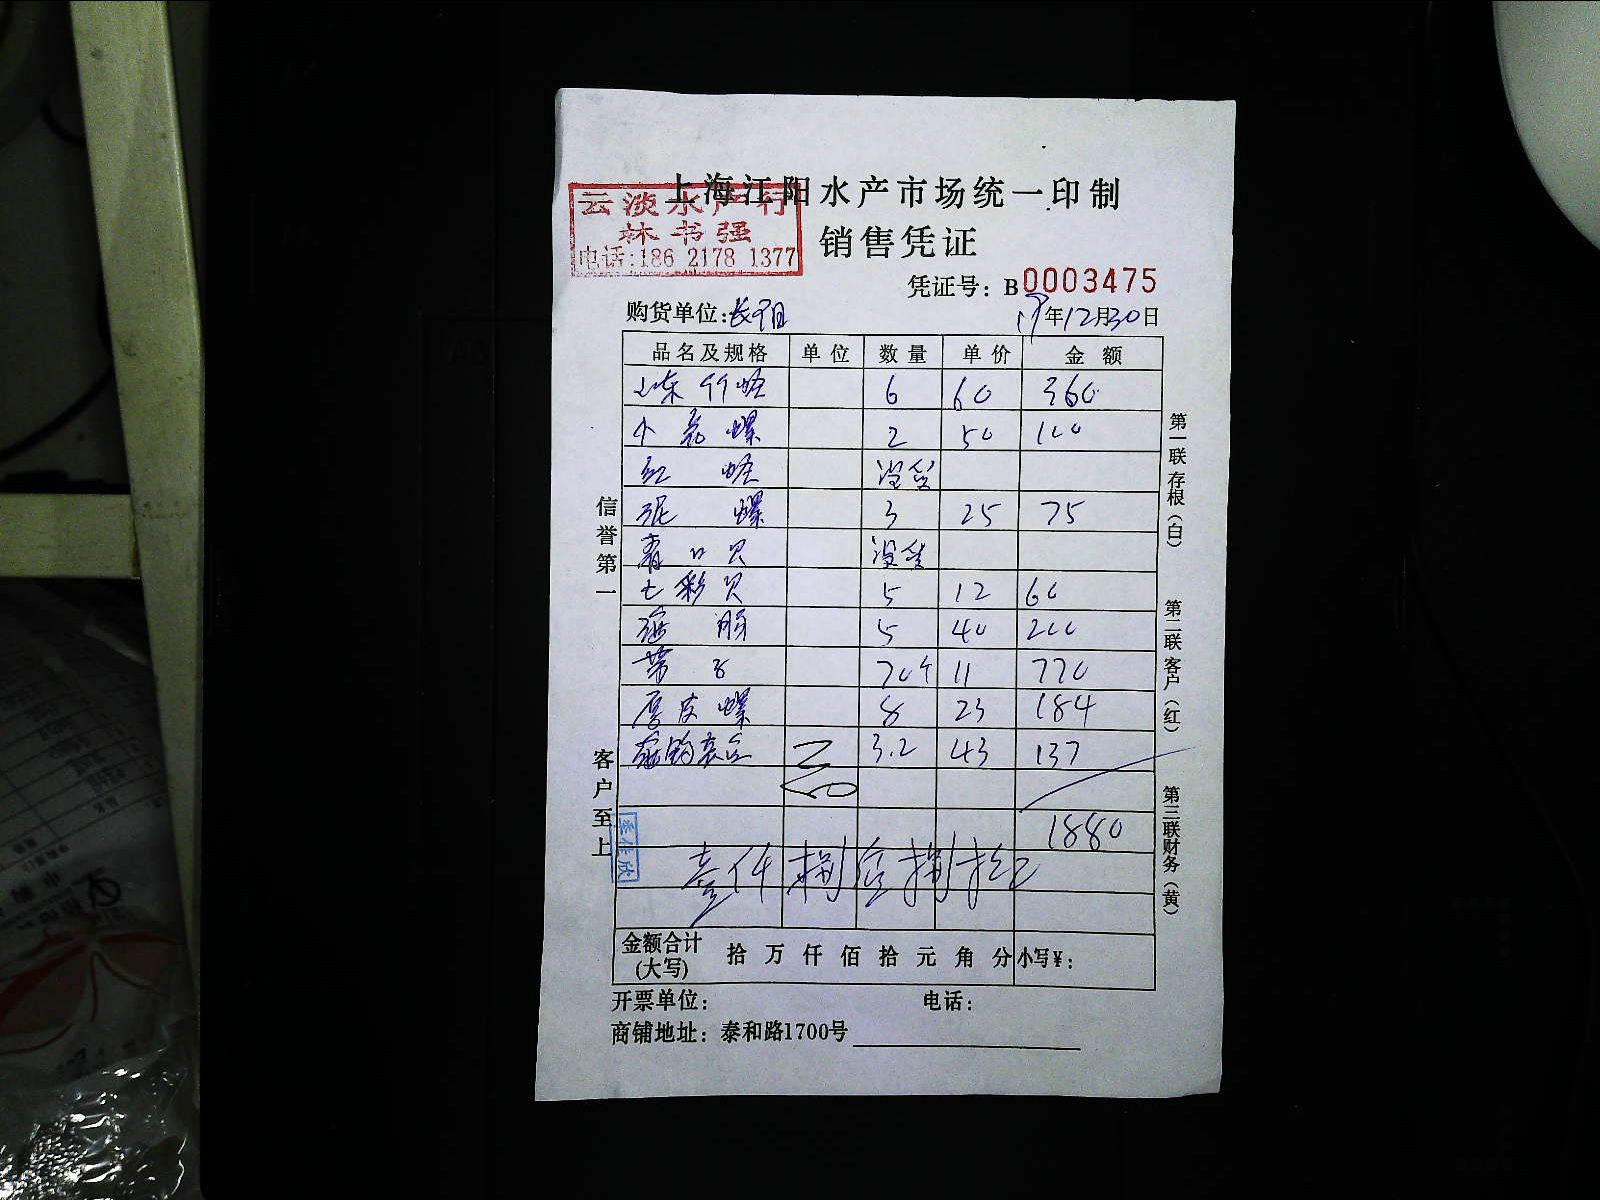 上海江阳水产市场统一印制
云淡水产行
林书强
电话:186 2178 1377
销售凭证
凭证号: B0003475
购货单位:长阳
年12月30日
品名及规格 单位 数量 单价 金额
山东竹蛏 6 60 360
小花螺 2 50 100
红蛏 没货
泥螺 3 25 75
青口贝 没货
七彩贝 5 12 60
海肠 5 40 200
带子 70个 11 770
厚皮螺 8 23 184
3.2 43 137
1880
壹仟捌佰捌拾
金额合计
(大写) 拾 万 仟 佰 拾 元 角 分 小写¥:
开票单位: 电话:
商铺地址: 泰和路1700号
信誉第一
客户至上
第一联存根(白)
第二联客户(红)
第三联财务(黄)